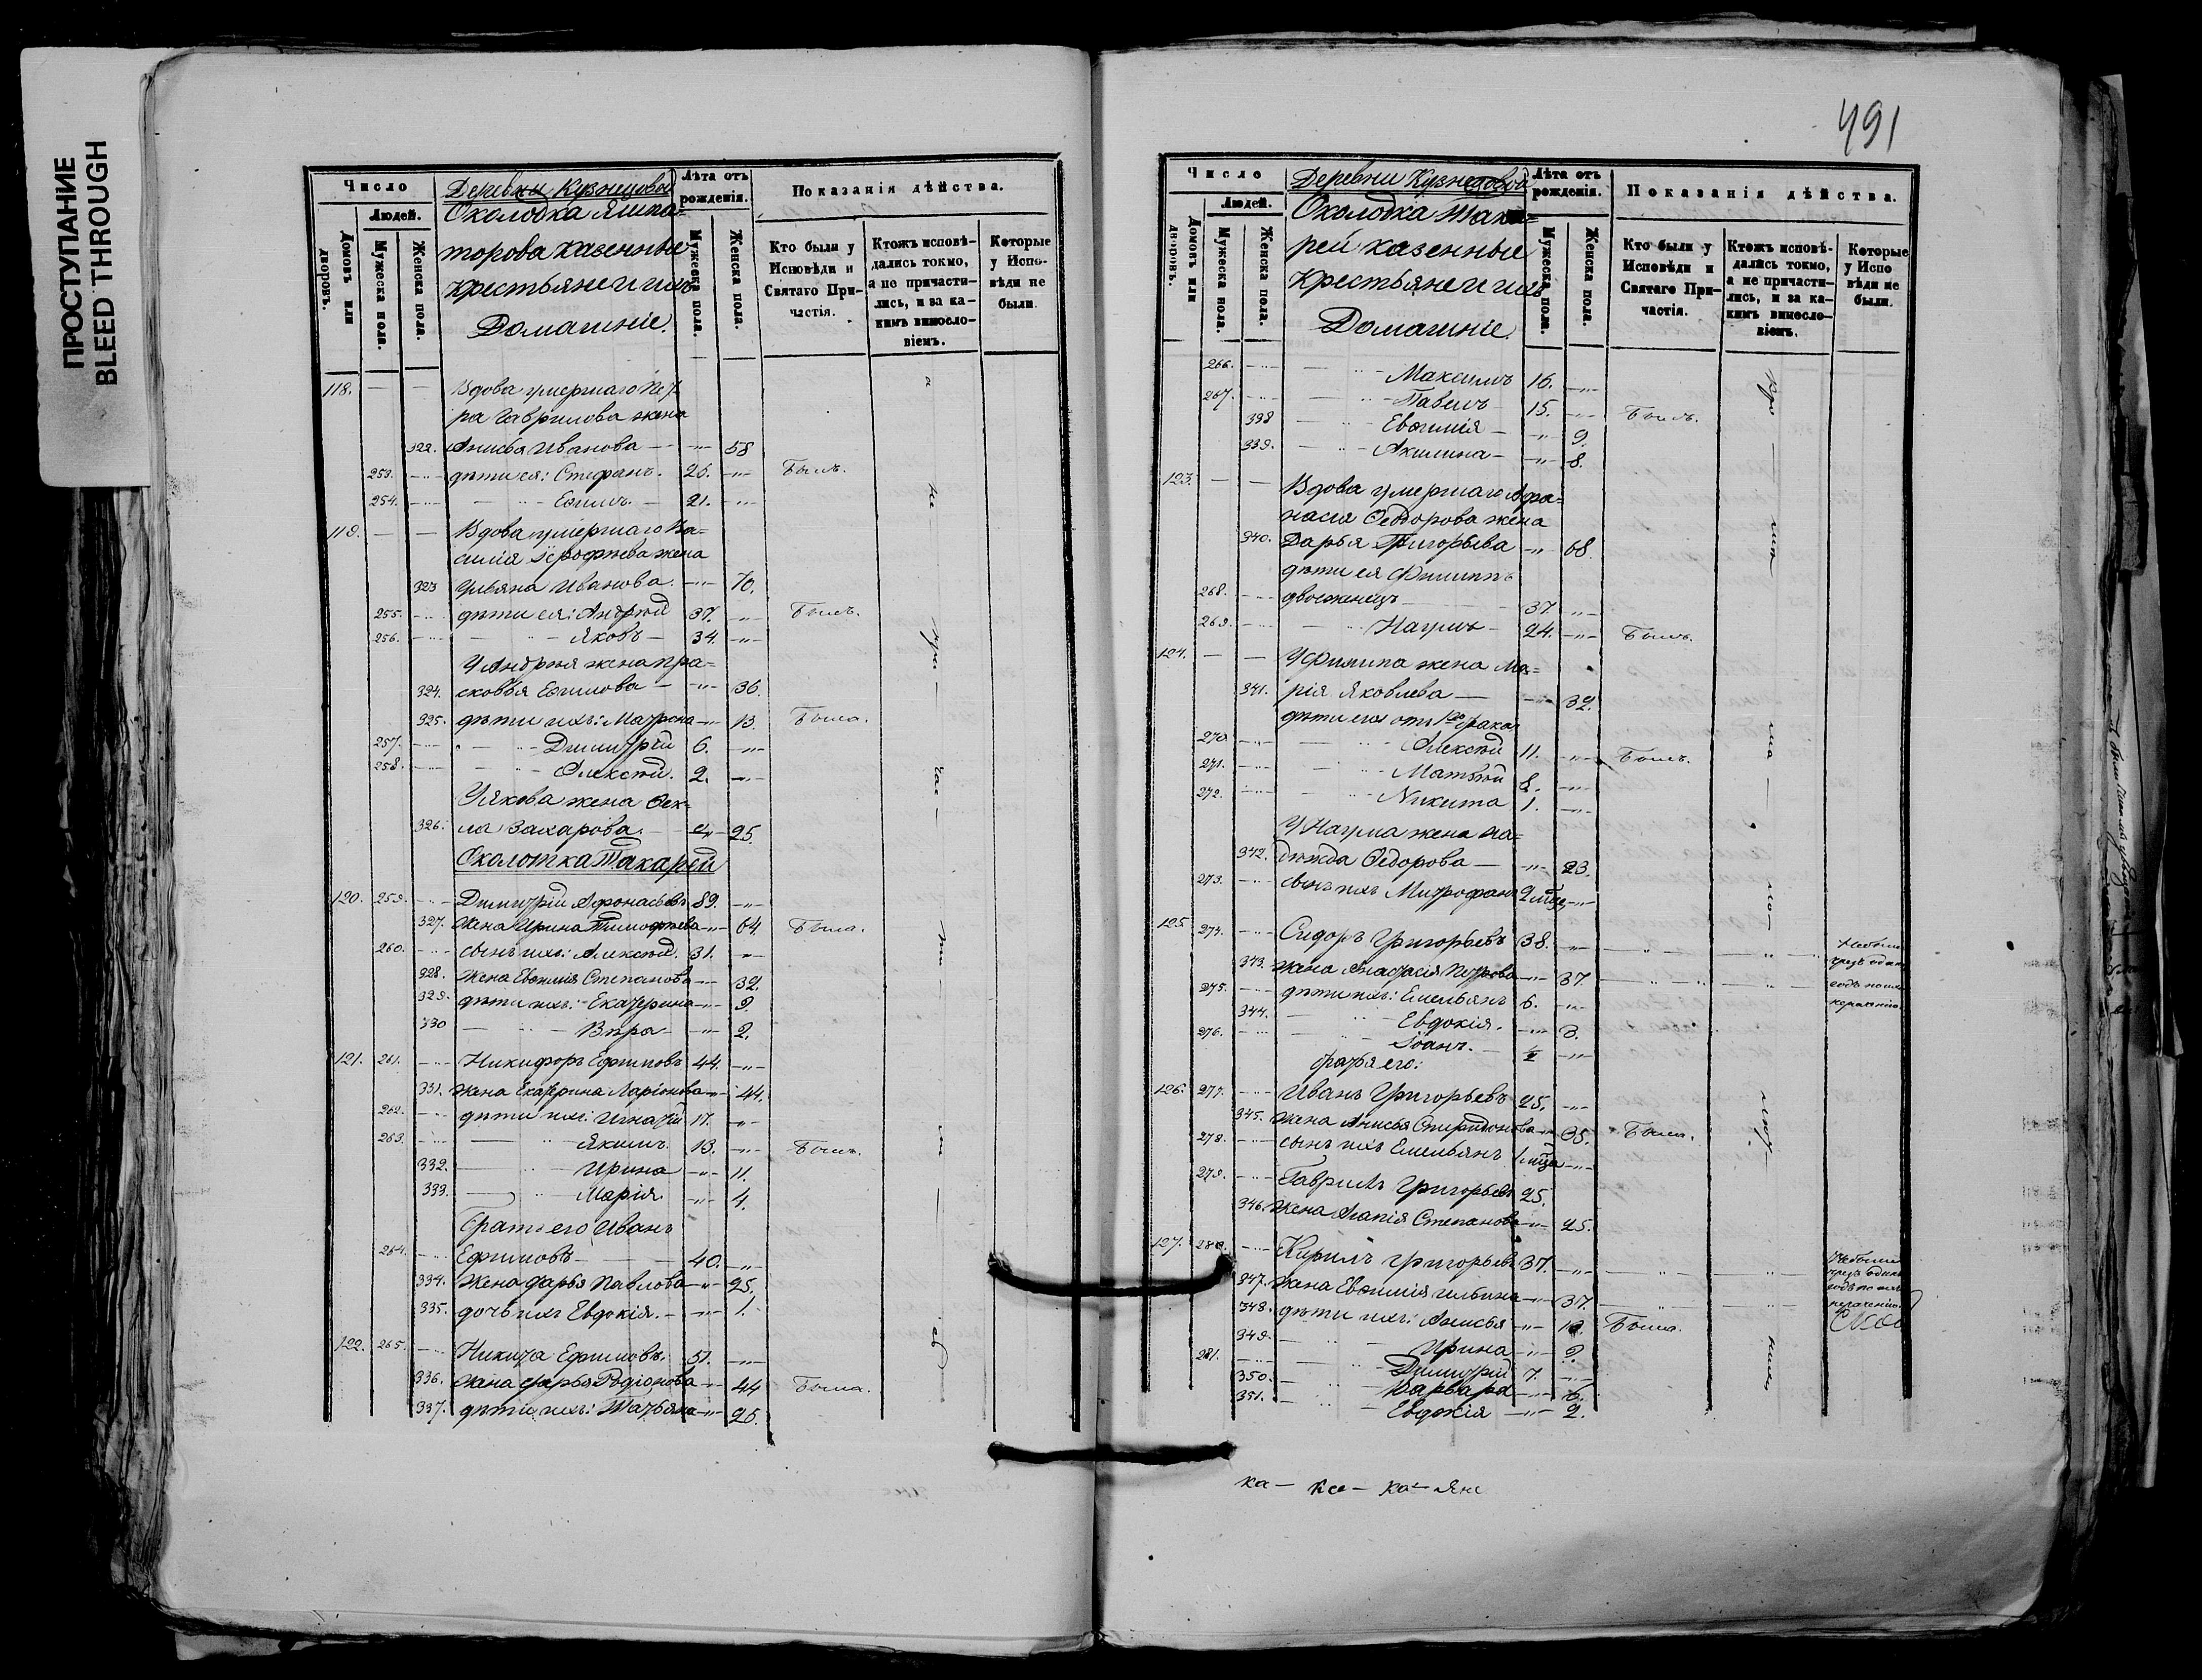 ПРОСТУПАНИЕ
BLEED THROUGH
Число
Людей.
Домовъ или дворовъ.
Мужеска пола.
Женска пола.
Деревни Кузнецовой
Околодка Яшпа=
торова казенные
крестьяне и ихъ
Домашніе.
Лѣта отъ рожденія.
Мужеска пола.
Женска пола.
Показанія дѣйства.
Кто были у Исповѣди и Святаго Причастія.
Ктожъ исповѣдались токмо, а не причастились, и за какимъ винословіемъ.
Которые у Исповѣди не были.
118. — — Вдова умершаго Пет=
ра Гаврилова жена
322. Анисья Иванова — 58
253. дѣти ея: Стефанъ. 26. Былъ.
254. Ефимъ. 21.
119. — — Вдова умершаго Ва=
силія Ерофѣева жена
323 Ульяна Иванова. 70.
255. дѣти ея: Андрей 37. Былъ.
256. Яковъ 34.
У Андрея жена Пра=
324. сковья Ефимова — 36.
325. дѣти ихъ: Матрона 13. Была.
257. Димитрій 6.
258. Алексѣй. 2.
У Якова жена Фек=
326. ла Захарова. 25.
Околотка Такарей
120. 259. Димитрій Афонасьевъ 89.
327. Жена Ирина Тимофѣева 64. Была.
260. сынъ ихъ: Алексѣй. 31.
328. Жена Евфимія Степанова 32.
329. дѣти ихъ: Екатерина 9.
330 Вѣра 2.
121. 261. Никифоръ Ефимовъ 44.
331. жена Екатерина Ларіонова 44.
262. дѣти ихъ: Игнатій 17.
263. Якимъ. 13. Былъ.
332. Ирина 11.
333. Марія. 4.
Братъ его Иванъ
264. Ефимовъ 40.
334. Жена Дарья Павлова 25.
335. дочь ихъ Евдокія. 1.
122. 265. Никита Ефимовъ. 51.
336. жена Дарья Родіонова 44 Была.
337. дѣти ихъ: Татьяна 26.
491
Число
Людей.
Домовъ или дворовъ.
Мужеска пола.
Женска пола.
Деревни Кузнецовой
Околодка Така=
рей казенные
Крестьяне и ихъ
Домашніе.
Лѣта отъ рожденія.
Мужеска пола.
Женска пола.
Показанія дѣйства.
Кто были у Исповѣди и Святаго Причастія.
Ктожъ исповѣдались токмо, а не причастились, и за какимъ винословіемъ.
Которые у Исповѣди не были.
266. Максимъ 16.
267. Павелъ 15. Былъ.
338 Евфимія 9.
339. Акилина 8.
123. — — Вдова умершаго Афа=
насія Феодорова жена
340. Дарья Григорьева 68.
дѣти ея Филиппъ
268. двоеженецъ 37.
269. Наумъ 24. Былъ.
124. — — У Филипа жена Ма=
341. рія Яковлева — 32.
дѣти его отъ 1го брака
270. Алексѣй 11. Былъ.
271. Матвѣй 8.
272. Никита 1.
У Наума жена На=
342. дѣжда Федорова — 23.
273. сынъ ихъ Митрофанъ 2 мѣс.
125. 274. Сидоръ Григорьевъ 38.
343. жена Анастасія Петрова 37.
275. дѣти ихъ: Емельянъ 6.
344. Евдокія. 3.
276. Іоанъ.
братья его:
126. 277. Иванъ Григорьевъ 25.
345. жена Анисья Спиридонова 35. Была.
278. сынъ ихъ Емельянъ 1 мѣца
279. Гаврилъ Григорьевъ 25.
346. жена Агапія Степанова 25.
127. 280. Кирилъ Григорьевъ 37.
347. жена Евфимія Ильина 37.
348. дѣти ихъ: Анисья 10. Была.
349. Ирина 9.
281. Димитрій 7.
350. Варвара 6.
351. Евдокія 2.
ка — ка — ка — яне